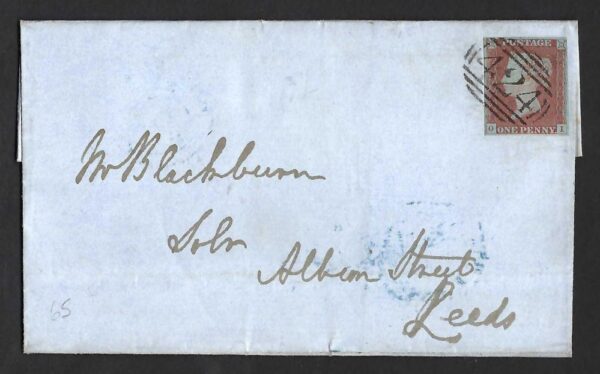 POSTAGE
424
O ONE PENNY I
Mr Blackburn
Solr
Albion Street
Leeds
65